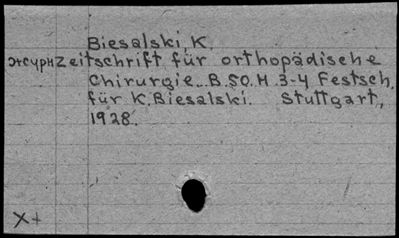 Biesalski, K.
журн Zeitschrift für orthopädische
Chirurgie.. B. 50. H. 3-4 Festsch.
für K. Biesalski. Stuttgart,
1928.
X+